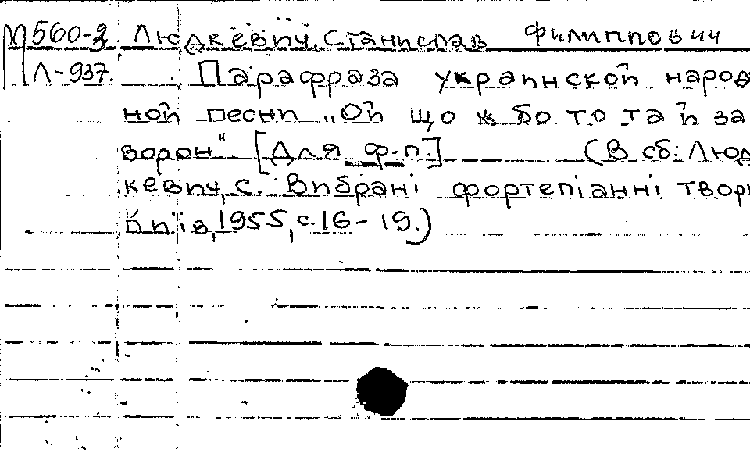 М560-3 Людкевич, Станислав Филиппович
Л-937. Парафраза украинской народ
ной песни „Ой що ж бо то та й за
ворон". [Для ф-п.] (В сб: Люд
кевич, С. Вибрані фортепіанні твор
Київ, 1955, с. 16-19.)